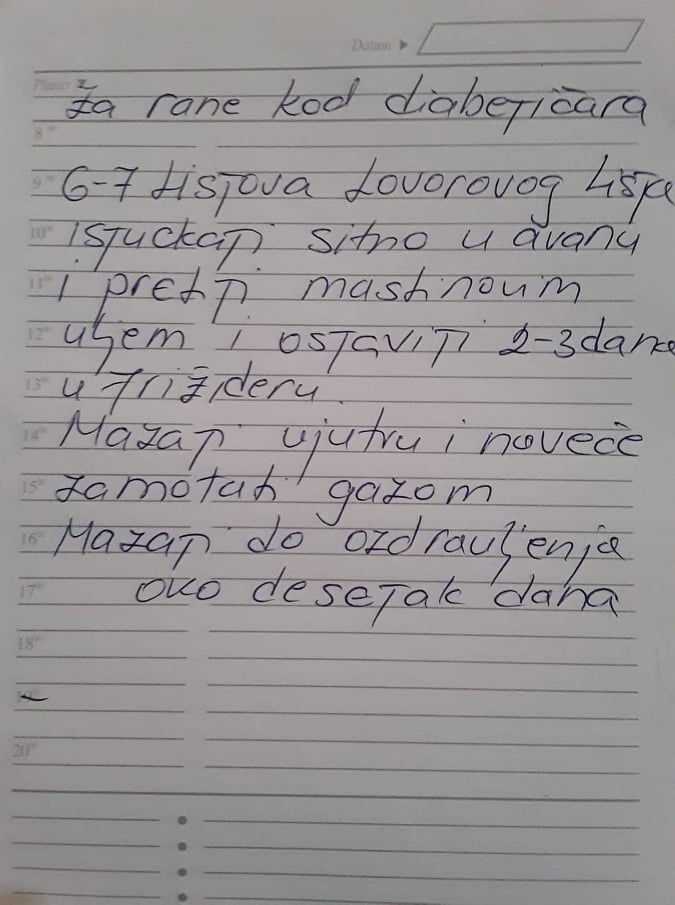 Datum
Planer
Za rane kod diabetičara
8⁰⁰
9⁰⁰ 6-7 listova Lovorovog Lišća
10⁰⁰ istuckati sitno u avanu
11⁰⁰ i preliti maslinovim
12⁰⁰ uljem i ostaviti 2-3 dana
13⁰⁰ u frižideru.
14⁰⁰ Mazati ujutru i noveče
15⁰⁰ zamotati gazom
16⁰⁰ Mazati do ozdravljenja
17⁰⁰ oko desetak dana
18⁰⁰
20⁰⁰